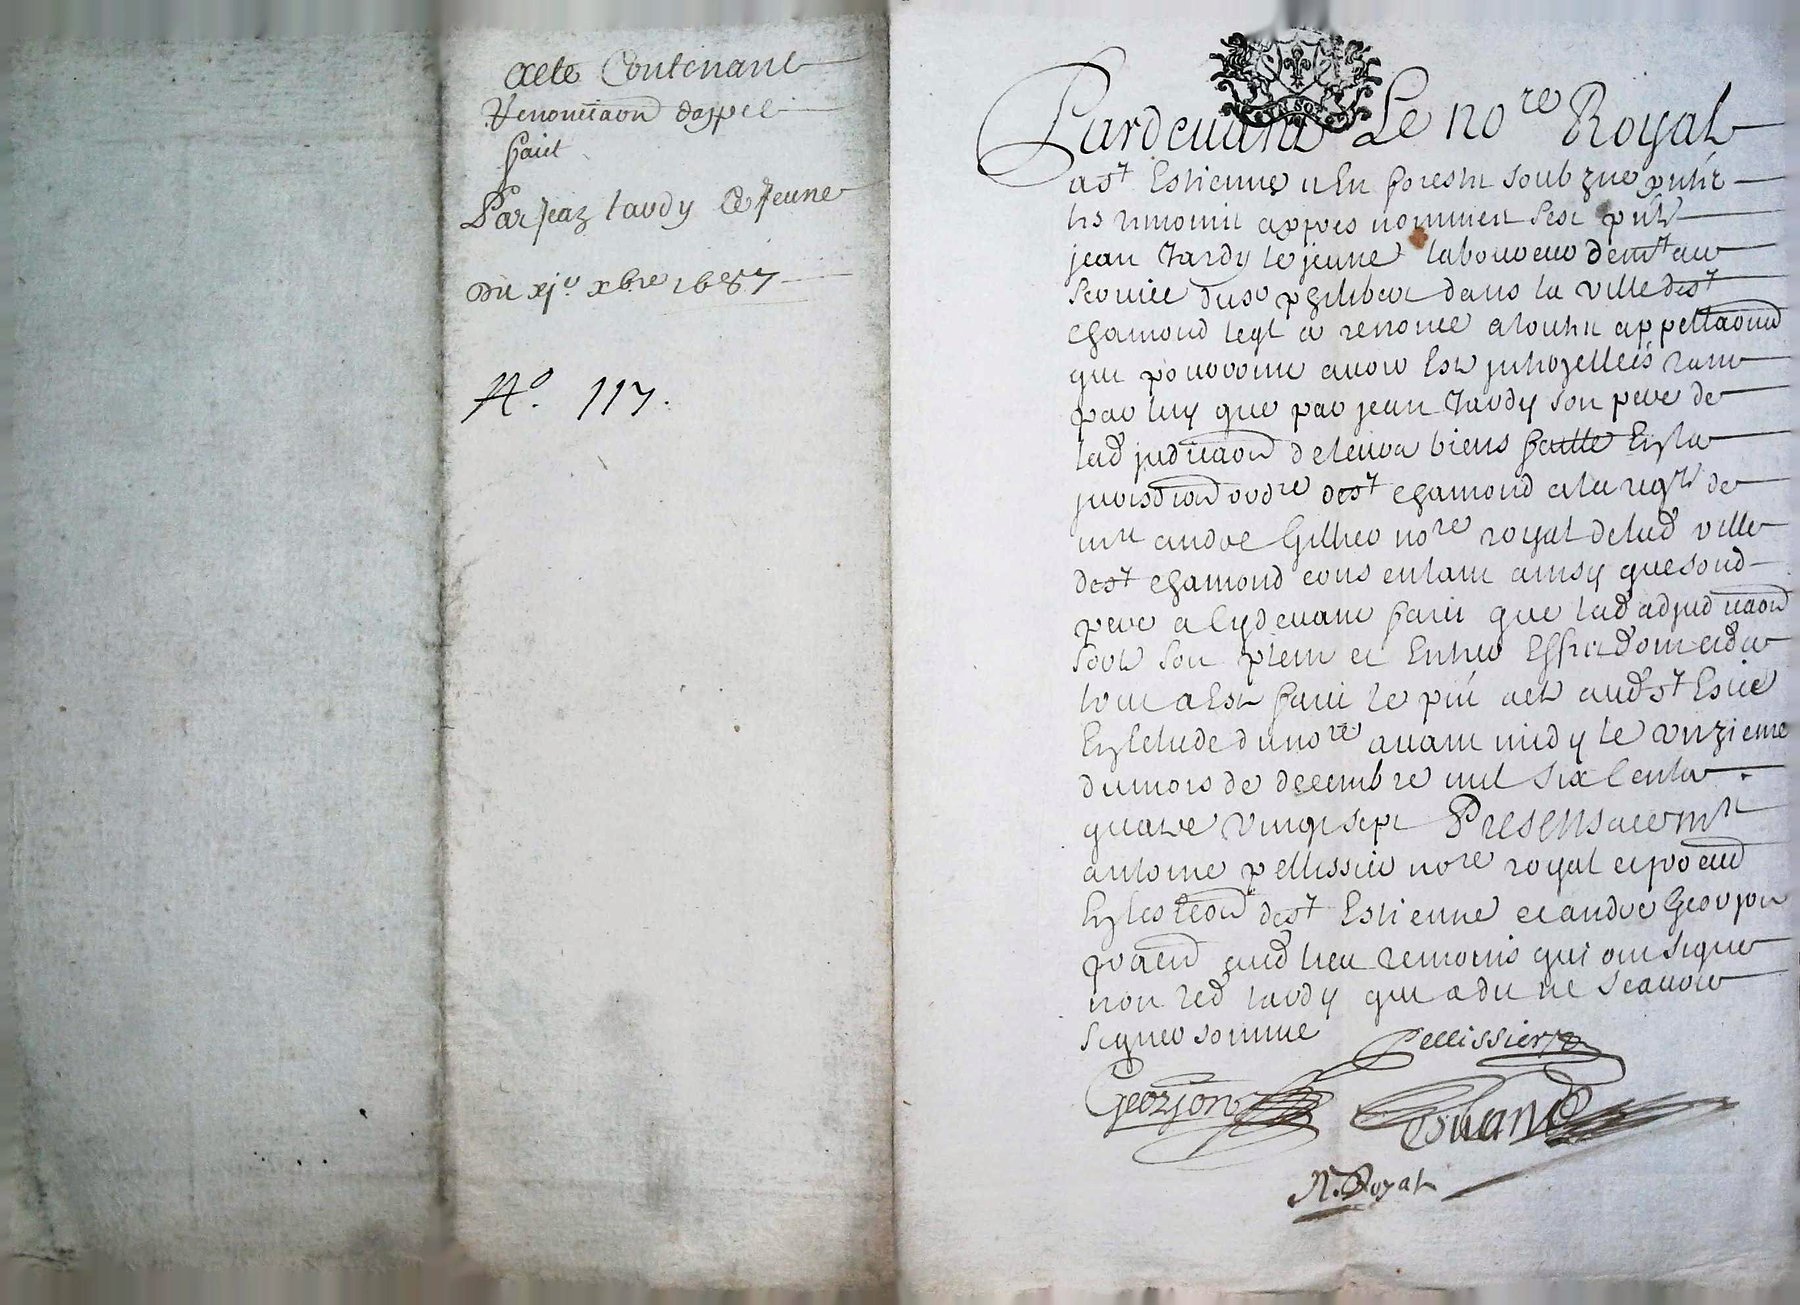 Acte Contenant
Renontiaon dappel
faict
Par Jean tardy Le Jeune
Du xj.e xbre 1687
N.o 117.
Pardevant Le no.re Royal
a s.t Estienne en forestz soubzne
tesmoins appres nommez sest
jean tardy le jeune laboureur dem.t au
dans la ville de s.t
chamond leql a renoncé a touttes appellaons
qui pouvoient avoir este tant
par luy que par jean tardy son pere de
lad judicaon de leurs biens faitte En la
jurisdicaon ord.re de s.t chamond de
m.re andre Gillier no.re royal de lad ville
de s.t chamond consentant ainsy que sond
pere a cy devant faict que lad adjudicaon
sorte son plein et Entier Effect dont et du
tout a Este faict le acte aud s.t Esti.e
En lestude du no.re avant midy le unzieme
du mois de decembre mil six Centz
quatre vingt sept Presens a ce m.re
antoine pellissier no.re royal et
de s.t Estienne et andre Georjon
aud lieu temoins qui ont signe
non led tardy qui a dit ne scavoir
signer somme
Pellissier
Georjon
N. Royal